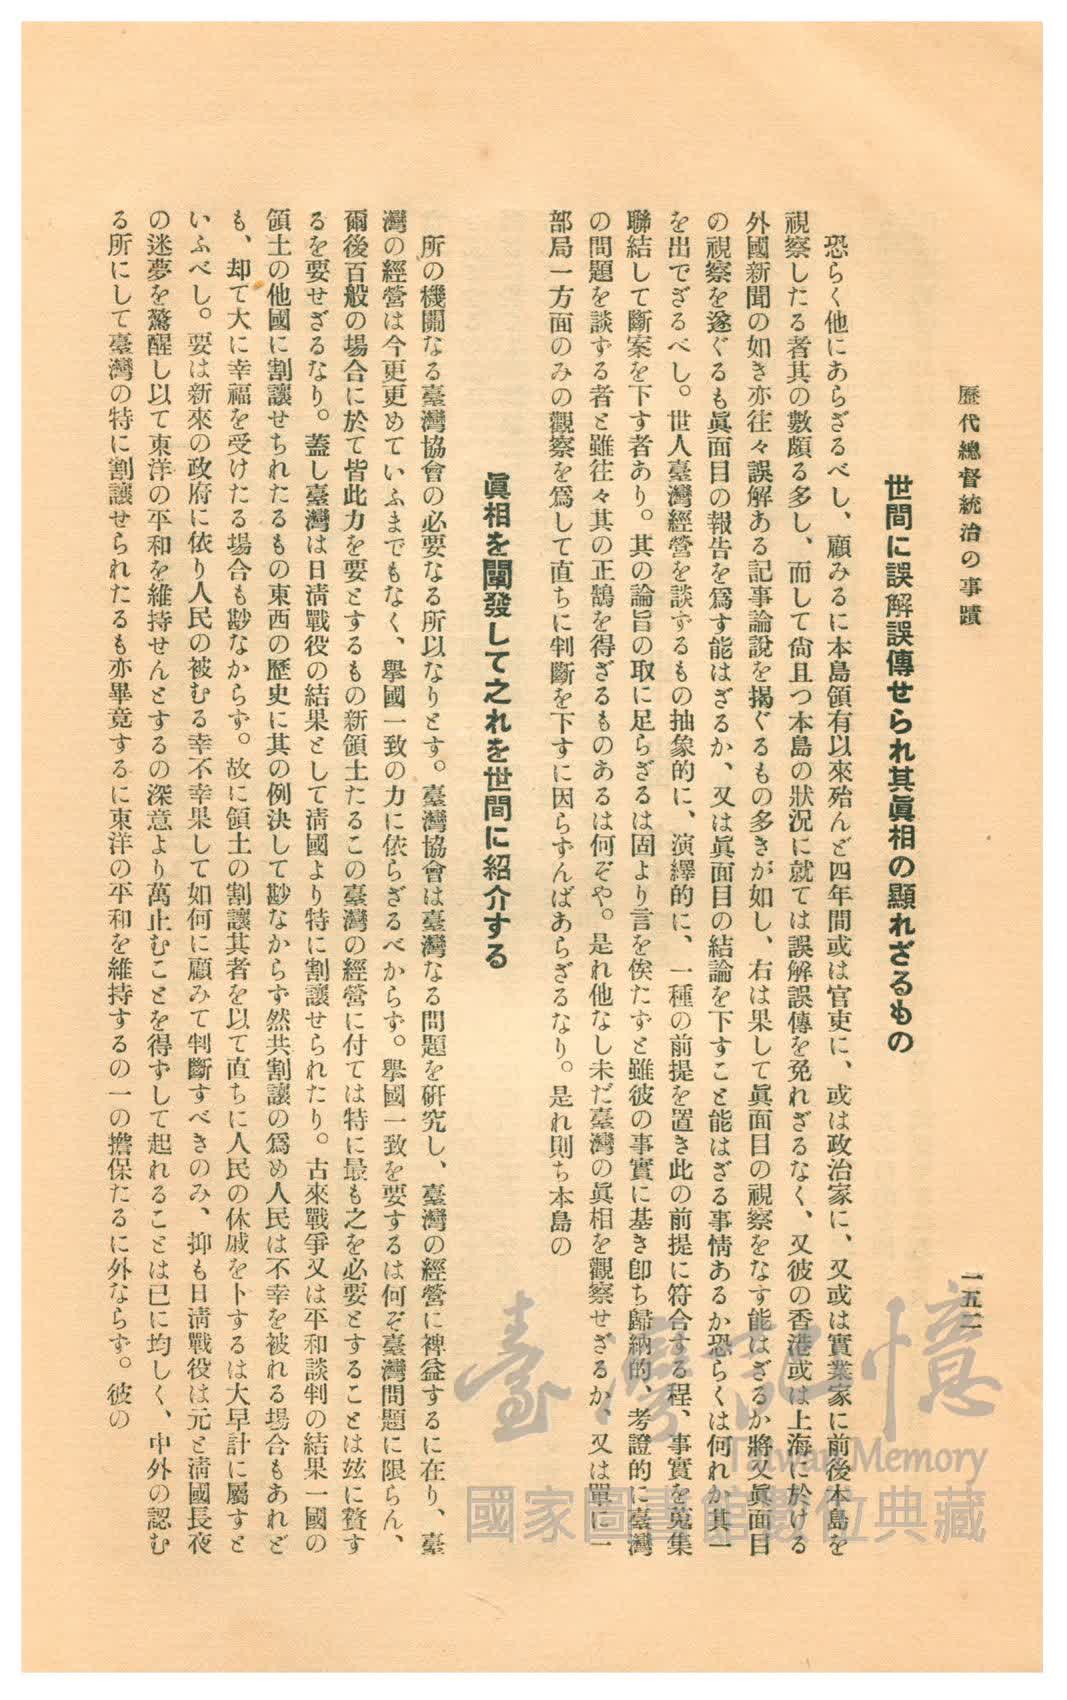 歷代總督統治の事蹟
一五二
世間に誤解誤傳せられ其眞相の顯れざるもの
恐らく他にあらざるべし、顧みるに本島領有以來殆んど四年間或は官吏に、或は政治家に、又或は實業家に前後本島を
視察したる者其の數頗る多し、而して尙且つ本島の狀況に就ては誤解誤傳を免れざるなく、又彼の香港或は上海に於ける
外國新聞の如き亦往々誤解ある記事論說を揭ぐるもの多きが如し、右は果して眞面目の視察をなす能はざるか將又眞面目
の視察を遂ぐるも眞面目の報告を爲す能はざるか、又は眞面目の結論を下すこと能はざる事情あるか恐らくは何れか其一
を出でざるべし。世人臺灣經營を談ずるもの抽象的に、演繹的に、一種の前提を置き此の前提に符合する程、事實を蒐集
聯結して斷案を下す者あり。其の論旨の取に足らざるは固より言を俟たずと雖彼の事實に基き卽ち歸納的、考證的に臺灣
の問題を談ずる者と雖往々其の正鵠を得ざるものあるは何ぞや。是れ他なし未だ臺灣の眞相を觀察せざるか、又は單に一
部局一方面のみの觀察を爲して直ちに判斷を下すに因らずんばあらざるなり。是れ則ち本島の
眞相を闡發して之れを世間に紹介する
所の機關なる臺灣協會の必要なる所以なりとす。臺灣協會は臺灣なる問題を硏究し、臺灣の經營に裨益するに在り、臺
灣の經營は今更更めていふまでもなく、擧國一致の力に依らざるべからず。擧國一致を要するは何ぞ臺灣問題に限らん、
爾後百般の場合に於て皆此力を要とするもの新領土たるこの臺灣の經營に付ては特に最も之を必要とすることは玆に贅す
るを要せざるなり。蓋し臺灣は日淸戰役の結果として淸國より特に割讓せられたり。古來戰爭又は平和談判の結果一國の
領土の他國に割讓せちれたるもの東西の歷史に其の例決して尠なからず然共割讓の爲め人民は不幸を被れる場合もあれど
も、却て大に幸福を受けたる場合も尠なからず。故に領土の割讓其者を以て直ちに人民の休戚を卜するは大早計に屬すと
いふべし。要は新來の政府に依り人民の被むる幸不幸果して如何に顧みて判斷すべきのみ、抑も日淸戰役は元と淸國長夜
の迷夢を驚醒し以て東洋の平和を維持せんとするの深意より萬止むことを得ずして起れることは已に均しく、中外の認む
る所にして臺灣の特に割讓せられたるも亦畢竟するに東洋の平和を維持するの一の擔保たるに外ならず。彼の
臺灣記憶
Taiwan Memory
國家圖書館數位典藏